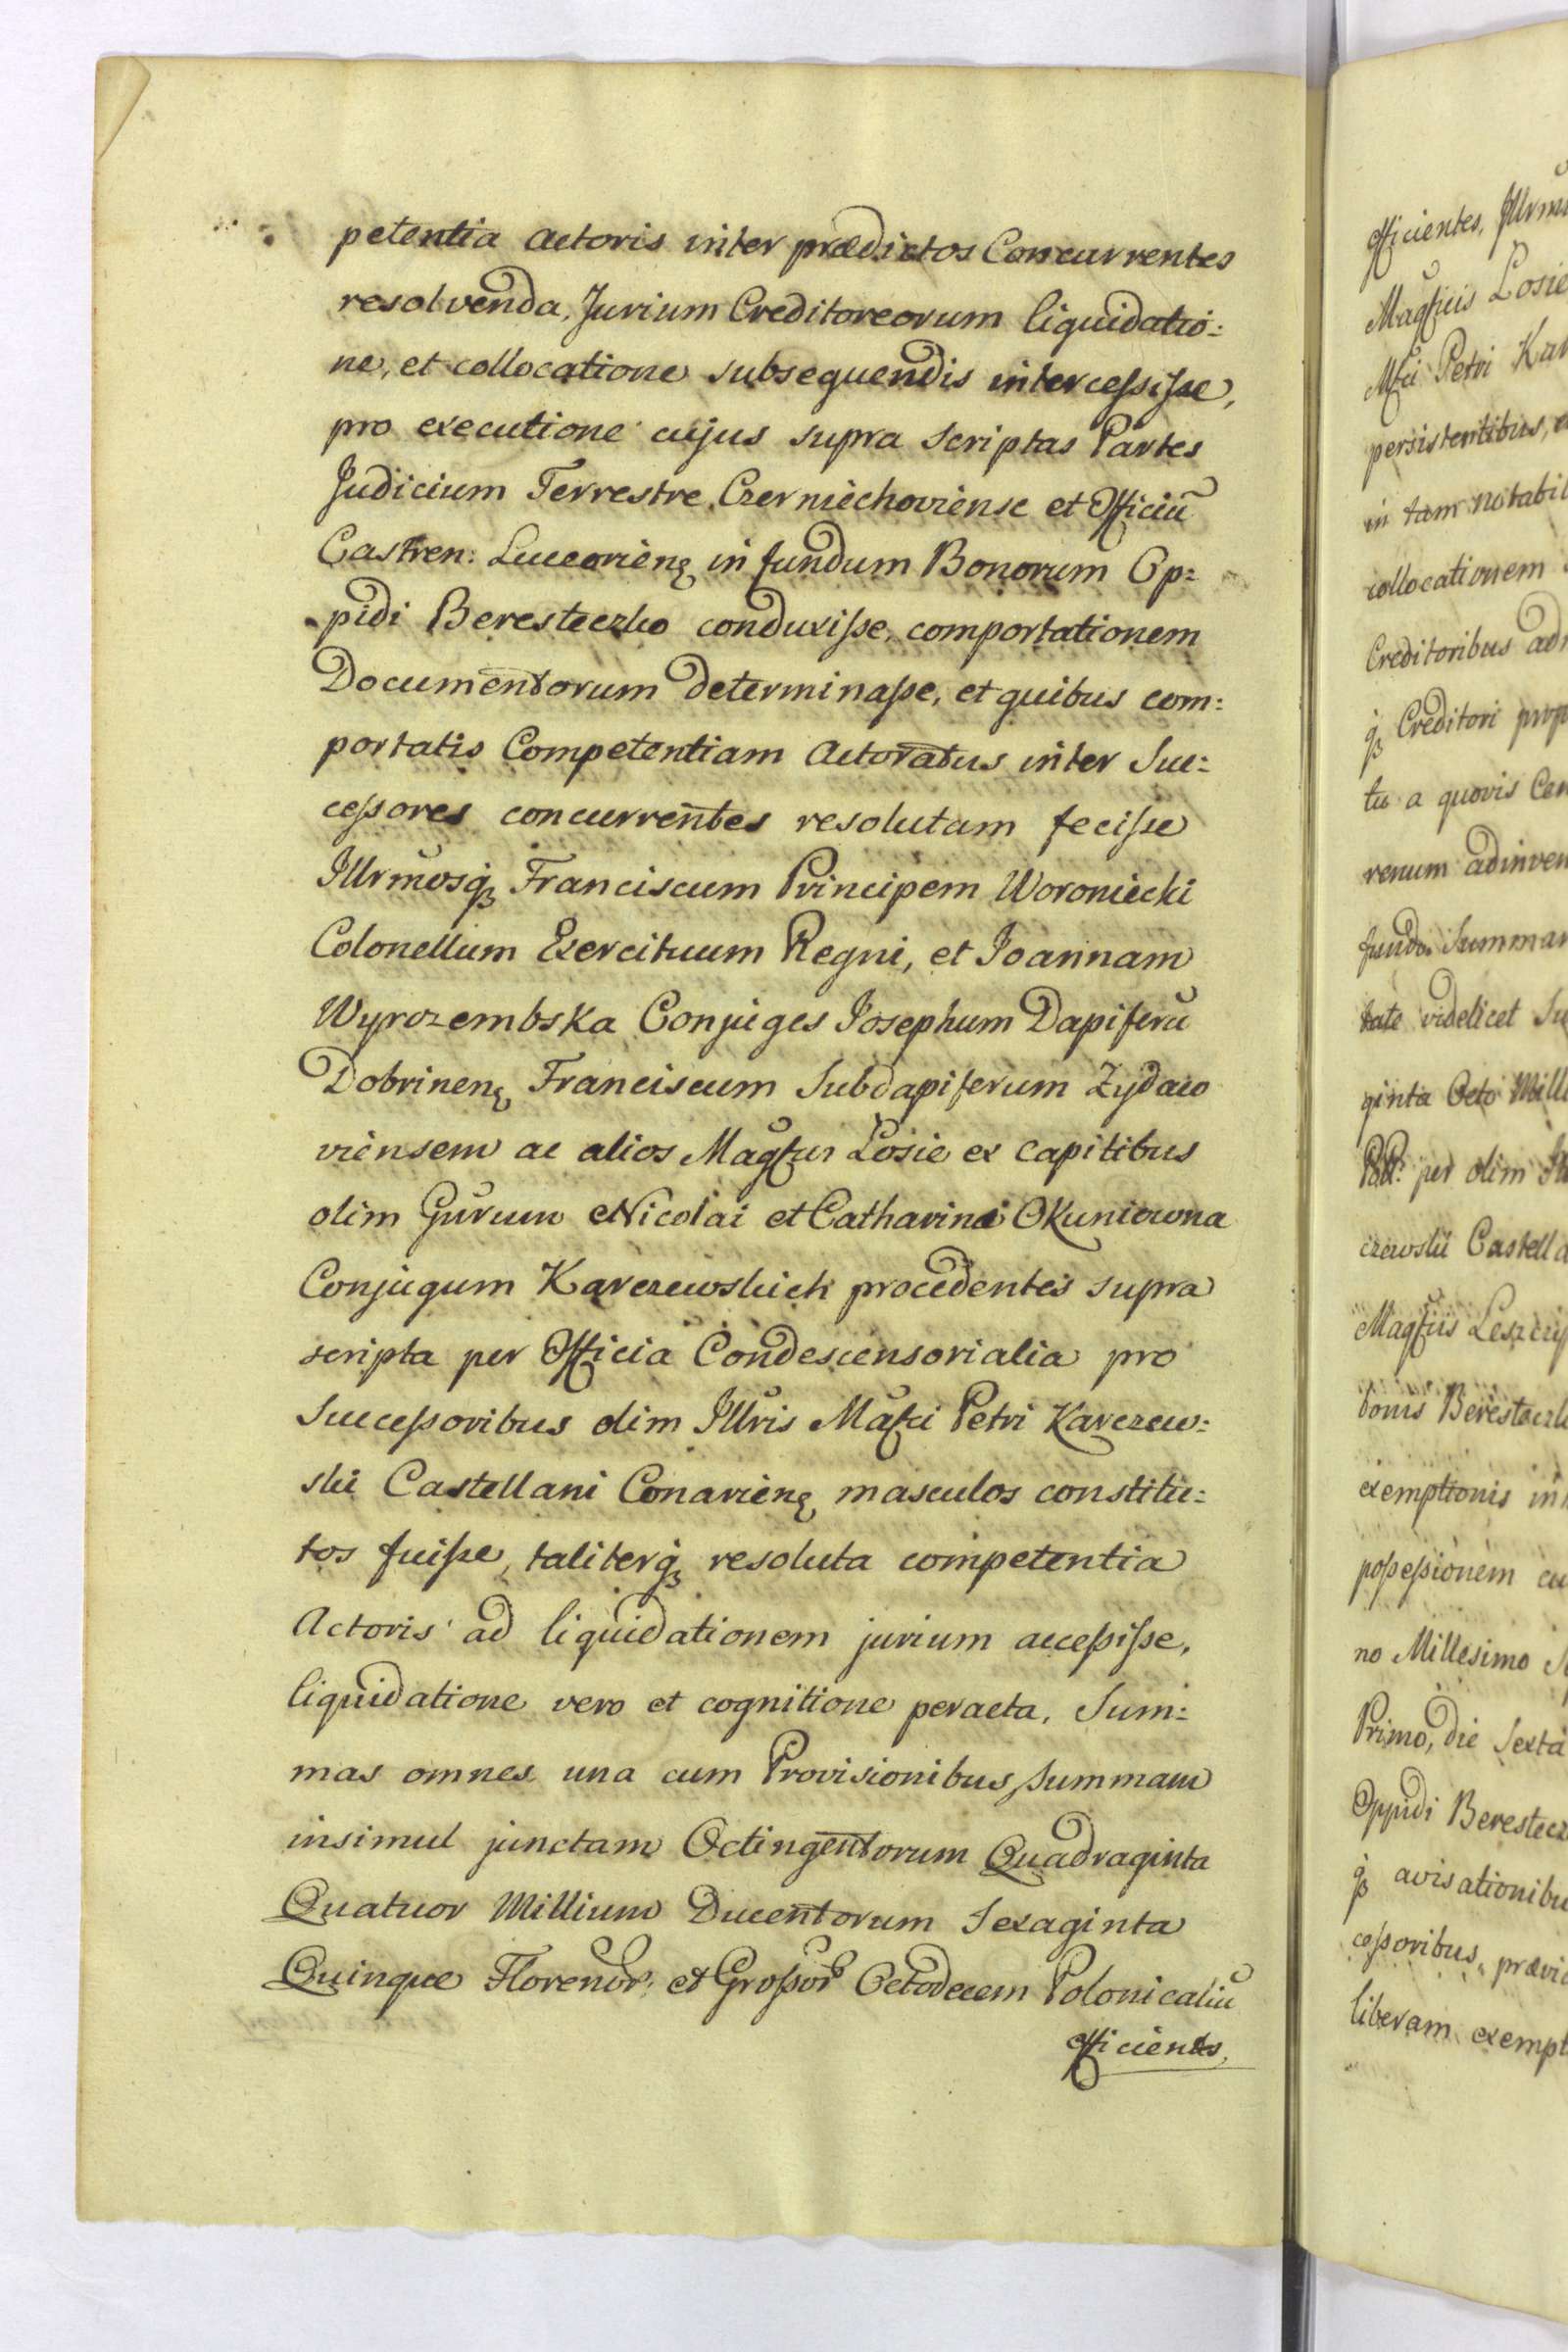 petentia actoris inter prædictos Concurrentes
resolvenda, Jurium Creditoreorum liquidatio:
ne, et collocatione subsequendis intercessisse,
pro executione cujus supra scriptas Partes
Judicium Terrestre Czerniechoviense et Officiū
Castren: Luceorieng in fundum Bonorum Op:
pidi Beresteczko conduxisse, comportationem
Documentorum determinasse, et quibus com:
portatis Competentiam Actoratus inter Suc:
cessores concurrentes resolutam fecisse
Illrmosq̃ Franciscum Principem Woroniecki
Colonellum Exercituum Regni, et Joannam
Wyrozembska Conjuges Josephum Dapiferū
Dobrineng Franciscum Subdapiferum Zydaco
viensem ac alios Magfcus Losie ex capitibus
olim Gurum Nicolai et Catharina Okuniowna
Conjugum Karczewskich procedentes supra
scripta per Officia Condescensorialia pro
Successoribus olim Illris Mafci Petri Karczew:
ski Castellani Conarieng masculos constitu:
tos fuisse, taliterq̃ resoluta competentia
Actoris ad liquidationem jurium accessisse,
liquidatione vero et cognitione peracta, Sum:
mas omnes una cum Provisionibus summam
insimul junctam Octingentorum Quadraginta
Quatuor Millium Ducentorum Sexaginta
Quinque Florenor: et Grossor Octodecem Polonicaliū
efficientes,
efficientes, Illrmu
Magficis Losie
Mfci Petri Kar
persistentibus,
in tam notabil
collocationem
Creditoribus adn
q̃ Creditori prop
tu a quovis Cen
renum adinven
fundo Summar
tate videlicet Su
ginta Octo Mill
per olim
czewski Castella
Magfcis Leszczy
bonis Beresteczk
exemptionis in
possessionem cu
no Millesimo S
Primo, die Sexta
Oppidi Berestecz
q̃ avisationibu
cessoribus, prævi
liberam exempt